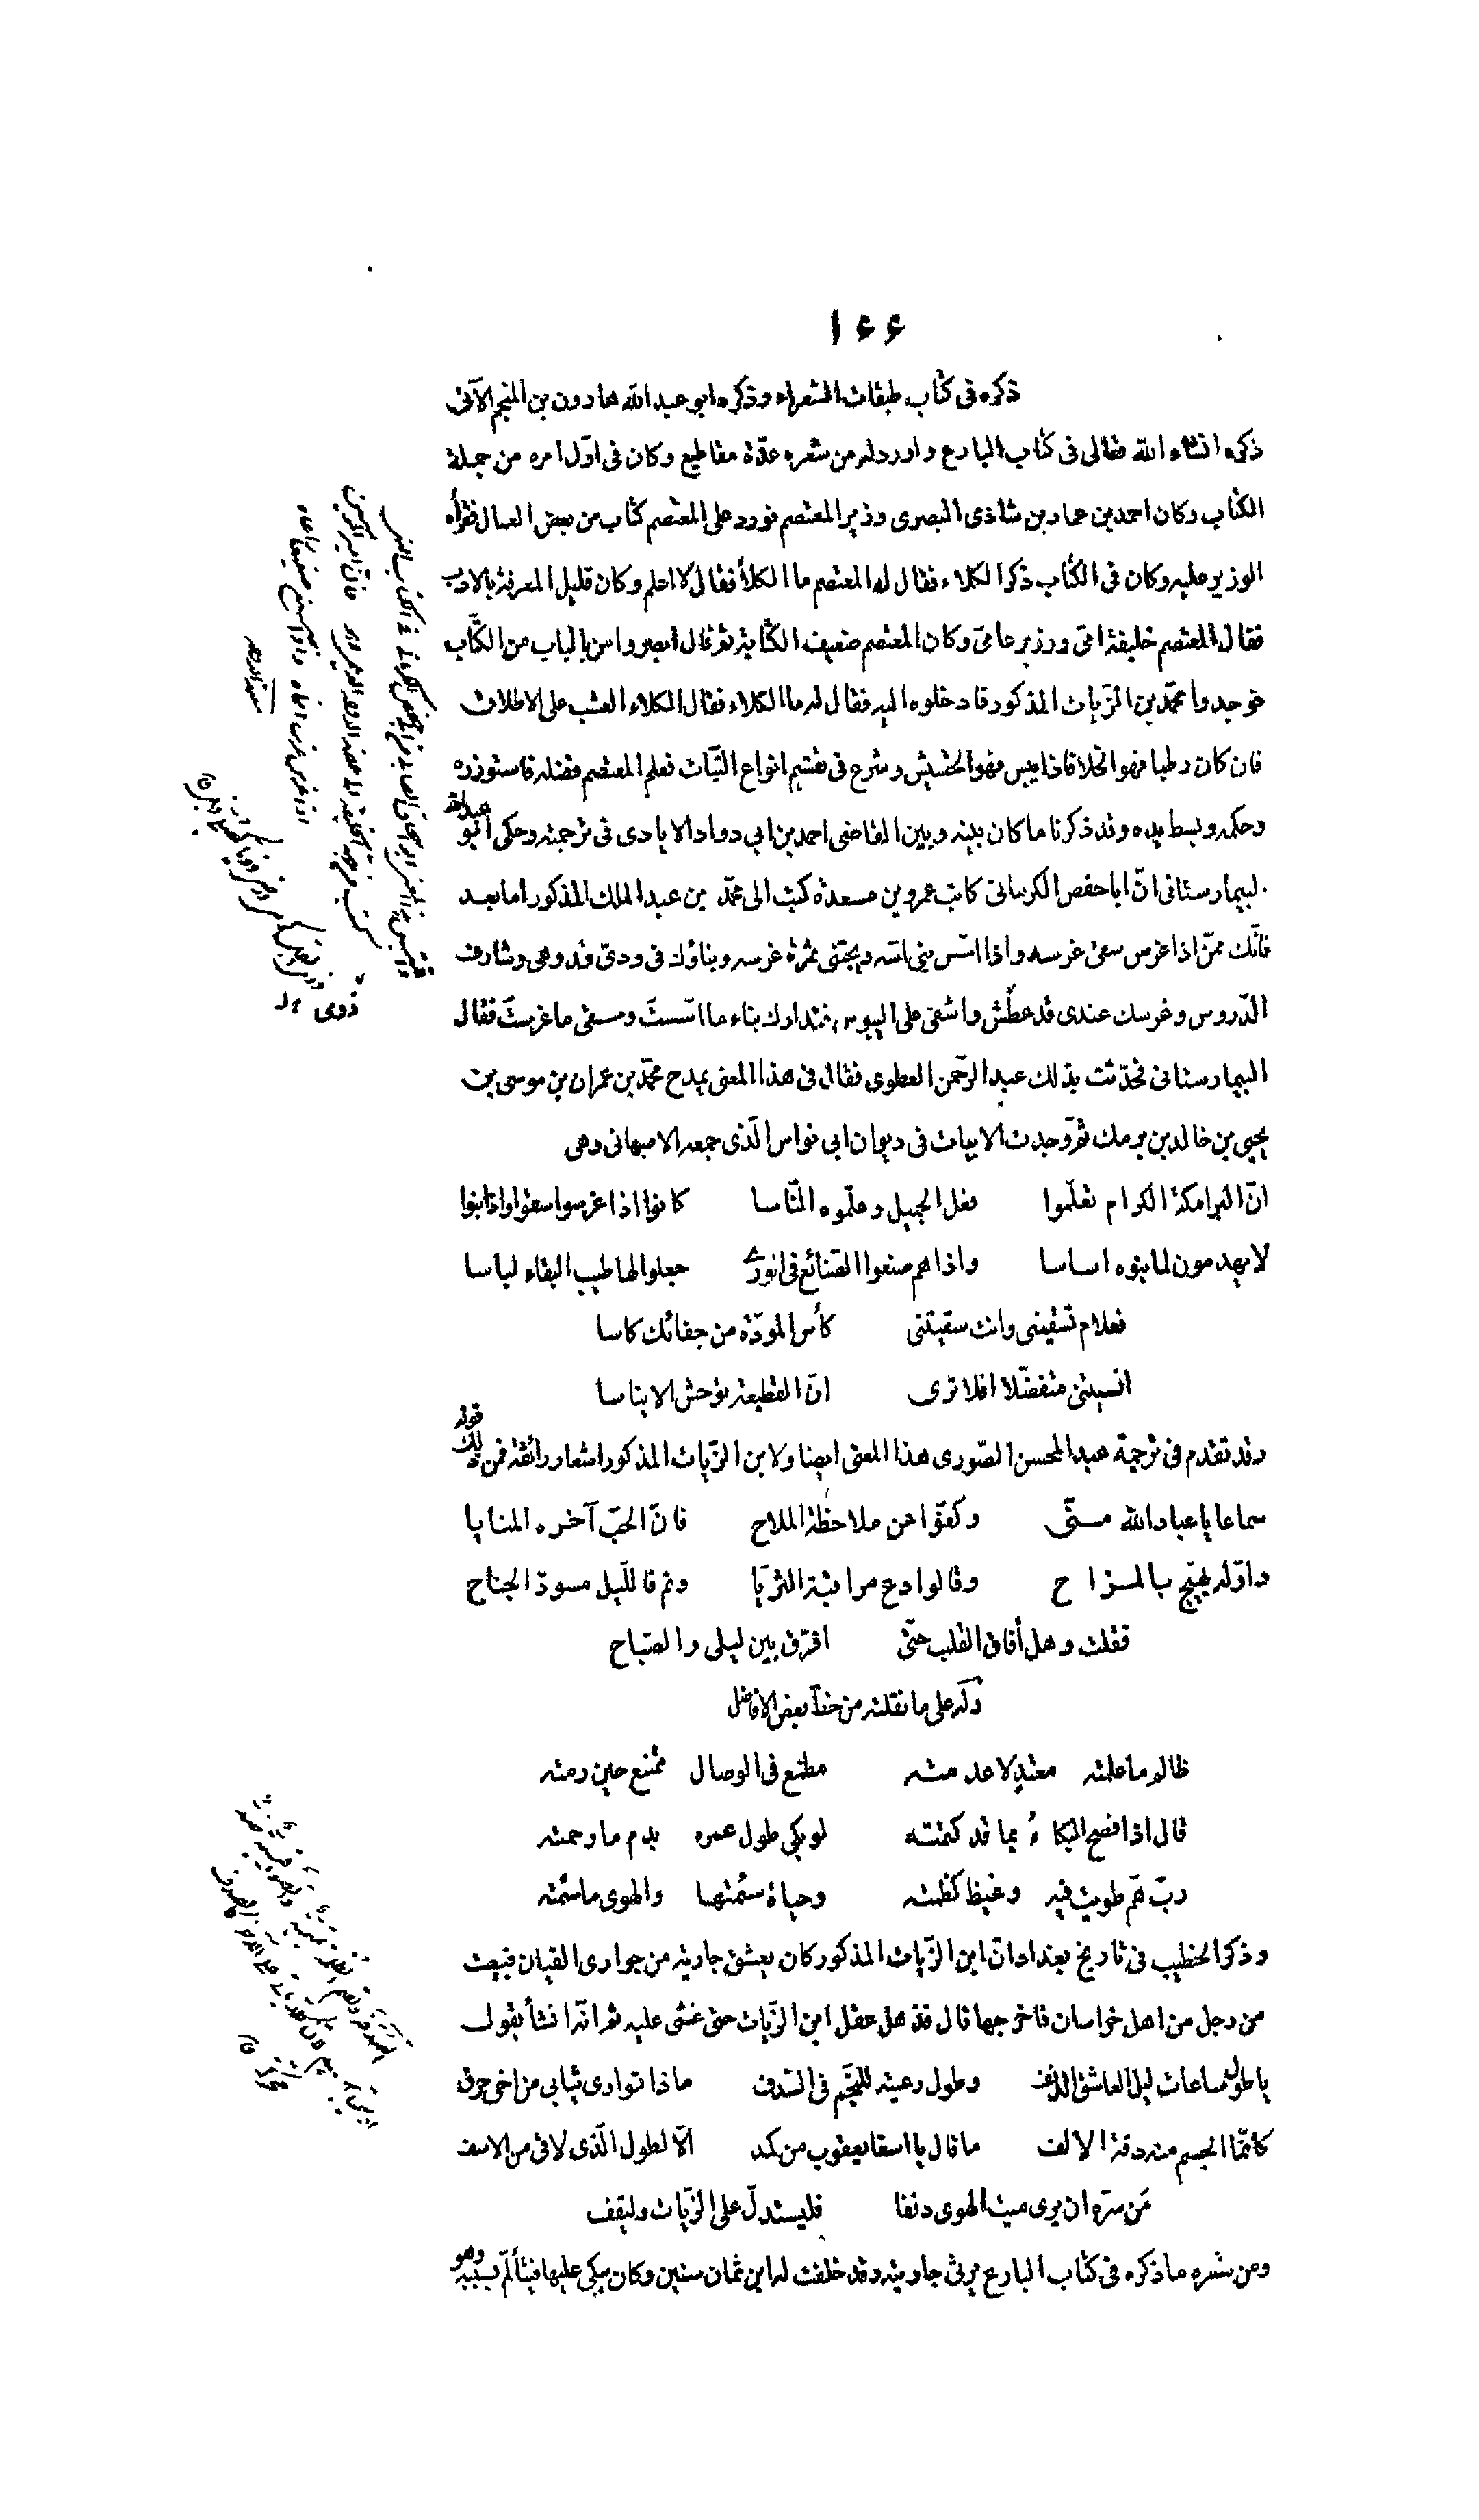 ١٤٤
ذكره فى كتاب طبقات الشعراء وذكره ابو عبد الله هارون بن المنجم الآتى
ذكره انشاء الله تعالى فى كتاب البارع واورد له من شعره عدّة مقاطيع وكان فى اوّل امره من جملة
الكتاب وكان احمد بن عمار بن شاذى البصرى وزير المعتصم فورد على المعتصم كتاب من بعض العمال فقرأه
الوزير عليه وكان فى الكتاب ذكر الكلاء فقال له المعتصم ما الكلأ فقال لا اعلم وكان قليل المعرفة بالادب
فقال المعتصم خليفة امىّ ووزير عامىّ وكان المعتصم ضعيف الكتابة ثم قال ابصروا من بالباب من الكتّاب
فوجدوا محمّد بن الزّيات المذكور فادخلوه اليه فقال له ما الكلاء فقال الكلاء العشب على الاطلاق
فان كان رطبا فهو الخلا فاذا يبس فهو الحشيش وشرع فى تقسيم انواع النّبات فعلم المعتصم فضله فاستوزره
وحكمه وبسط يده وقد ذكرنا ما كان بينه وبين القاضى احمد بن ابى دواد الايادى فى ترجمته وحكى ابو عبد الله
البيمارستانى انّ ابا حفص الكرمانى كاتب عمرو بن مسعدة كتب الى محمّد بن عبد الملك المذكور اما بعد
فانّك ممّن اذا غرس سقى غرسه واذا اسّس بنى اسّه ويجتنى ثمرة غرسه وبناؤك فى ودى قد وهى وشارف
الدّروس وغرسك عندى قد عطش واشفى على اليبوس فتدارك بناء ما اسّستَ وسقى ما غرستَ فقال
البيمارستانى فحدّثت بذلك عبد الرّحمن العطوى فقال فى هذا المعنى يمدح محمّد بن عمران بن موسى بن
يحيى بن خالد بن برمك ثمّ وجدت الابيات فى ديوان ابى نواس الّذى جمعه الاصبهانى وهى
انّ البرامكة الكرام تعلّموا فعل الجميل وعلّموه النّاسا كانوا اذا غرسوا سقوا واذا بنوا
لا يهدمون لما بنوه اساسا واذا هم صنعوا الصّنائع فى الورى جعلوا لها طيب البقاء لباسا
فعلام تسقينى وانت سقيتنى كأس المودّة من جفائك كاسا
انسيتنى متفضّلا افلا ترى انّ القطيعة توحش الايناسا
وقد تقدم فى ترجمة عبد المحسن الصّورى هذا المعنى ايضا ولابن الزّيات المذكور اشعار رائقة فمن ذلك قوله
سماعا يا عباد الله منّى وكفّوا عن ملاحظة الملاح فانّ الحبّ آخره المنايا
واوّله يهيّج بالمزاح وقالوا دع مراقبة الثريّا ونم فاللّيل مسودّ الجناح
فقلت وهل أفاق القلب حتّى افرّق بين ليلى والصّباح
وله على ما نقلته من خط بعض الافاضل
ظالم ما علمته معتدٍ لا عدمته مطمع فى الوصال ممتنع حين رمته
قال اذ افصح البكاءُ بما قد كتمته لو بكى طول عمره بدم ما رحمته
ربّ همّ طويت فيه وغيظا كظمته وحياة سئمتها والهوى ما سئمته
وذكر الخطيب فى تاريخ بغداد انّ ابن الزّيات المذكور كان يعشق جارية من جوارى القيان فبيعت
من رجل من اهل خراسان فاخرجها قال فذهل عقل ابن الزّيات حتى غشى عليه ثم انّه انشأ يقول
يا طول ساعات ليل العاشق الدنف وطول رعيته للنّجم فى السّدف ماذا توارى ثيابى من اخى حرق
كانّما الجسم منه دقة الالف ما قال يا اسفا يعقوب من كمد الّا لطول الّذى لاقى من الاسف
مَن سرّه ان يرى ميت الهوى دنفا فليستدلّ على الزّيات وليقف
ومن شعره ما ذكره فى كتاب البارع يرثى جاريته وقد خلفت له ابن ثمان سنين وكان يبكى عليها فيتألّم بسببه وهو